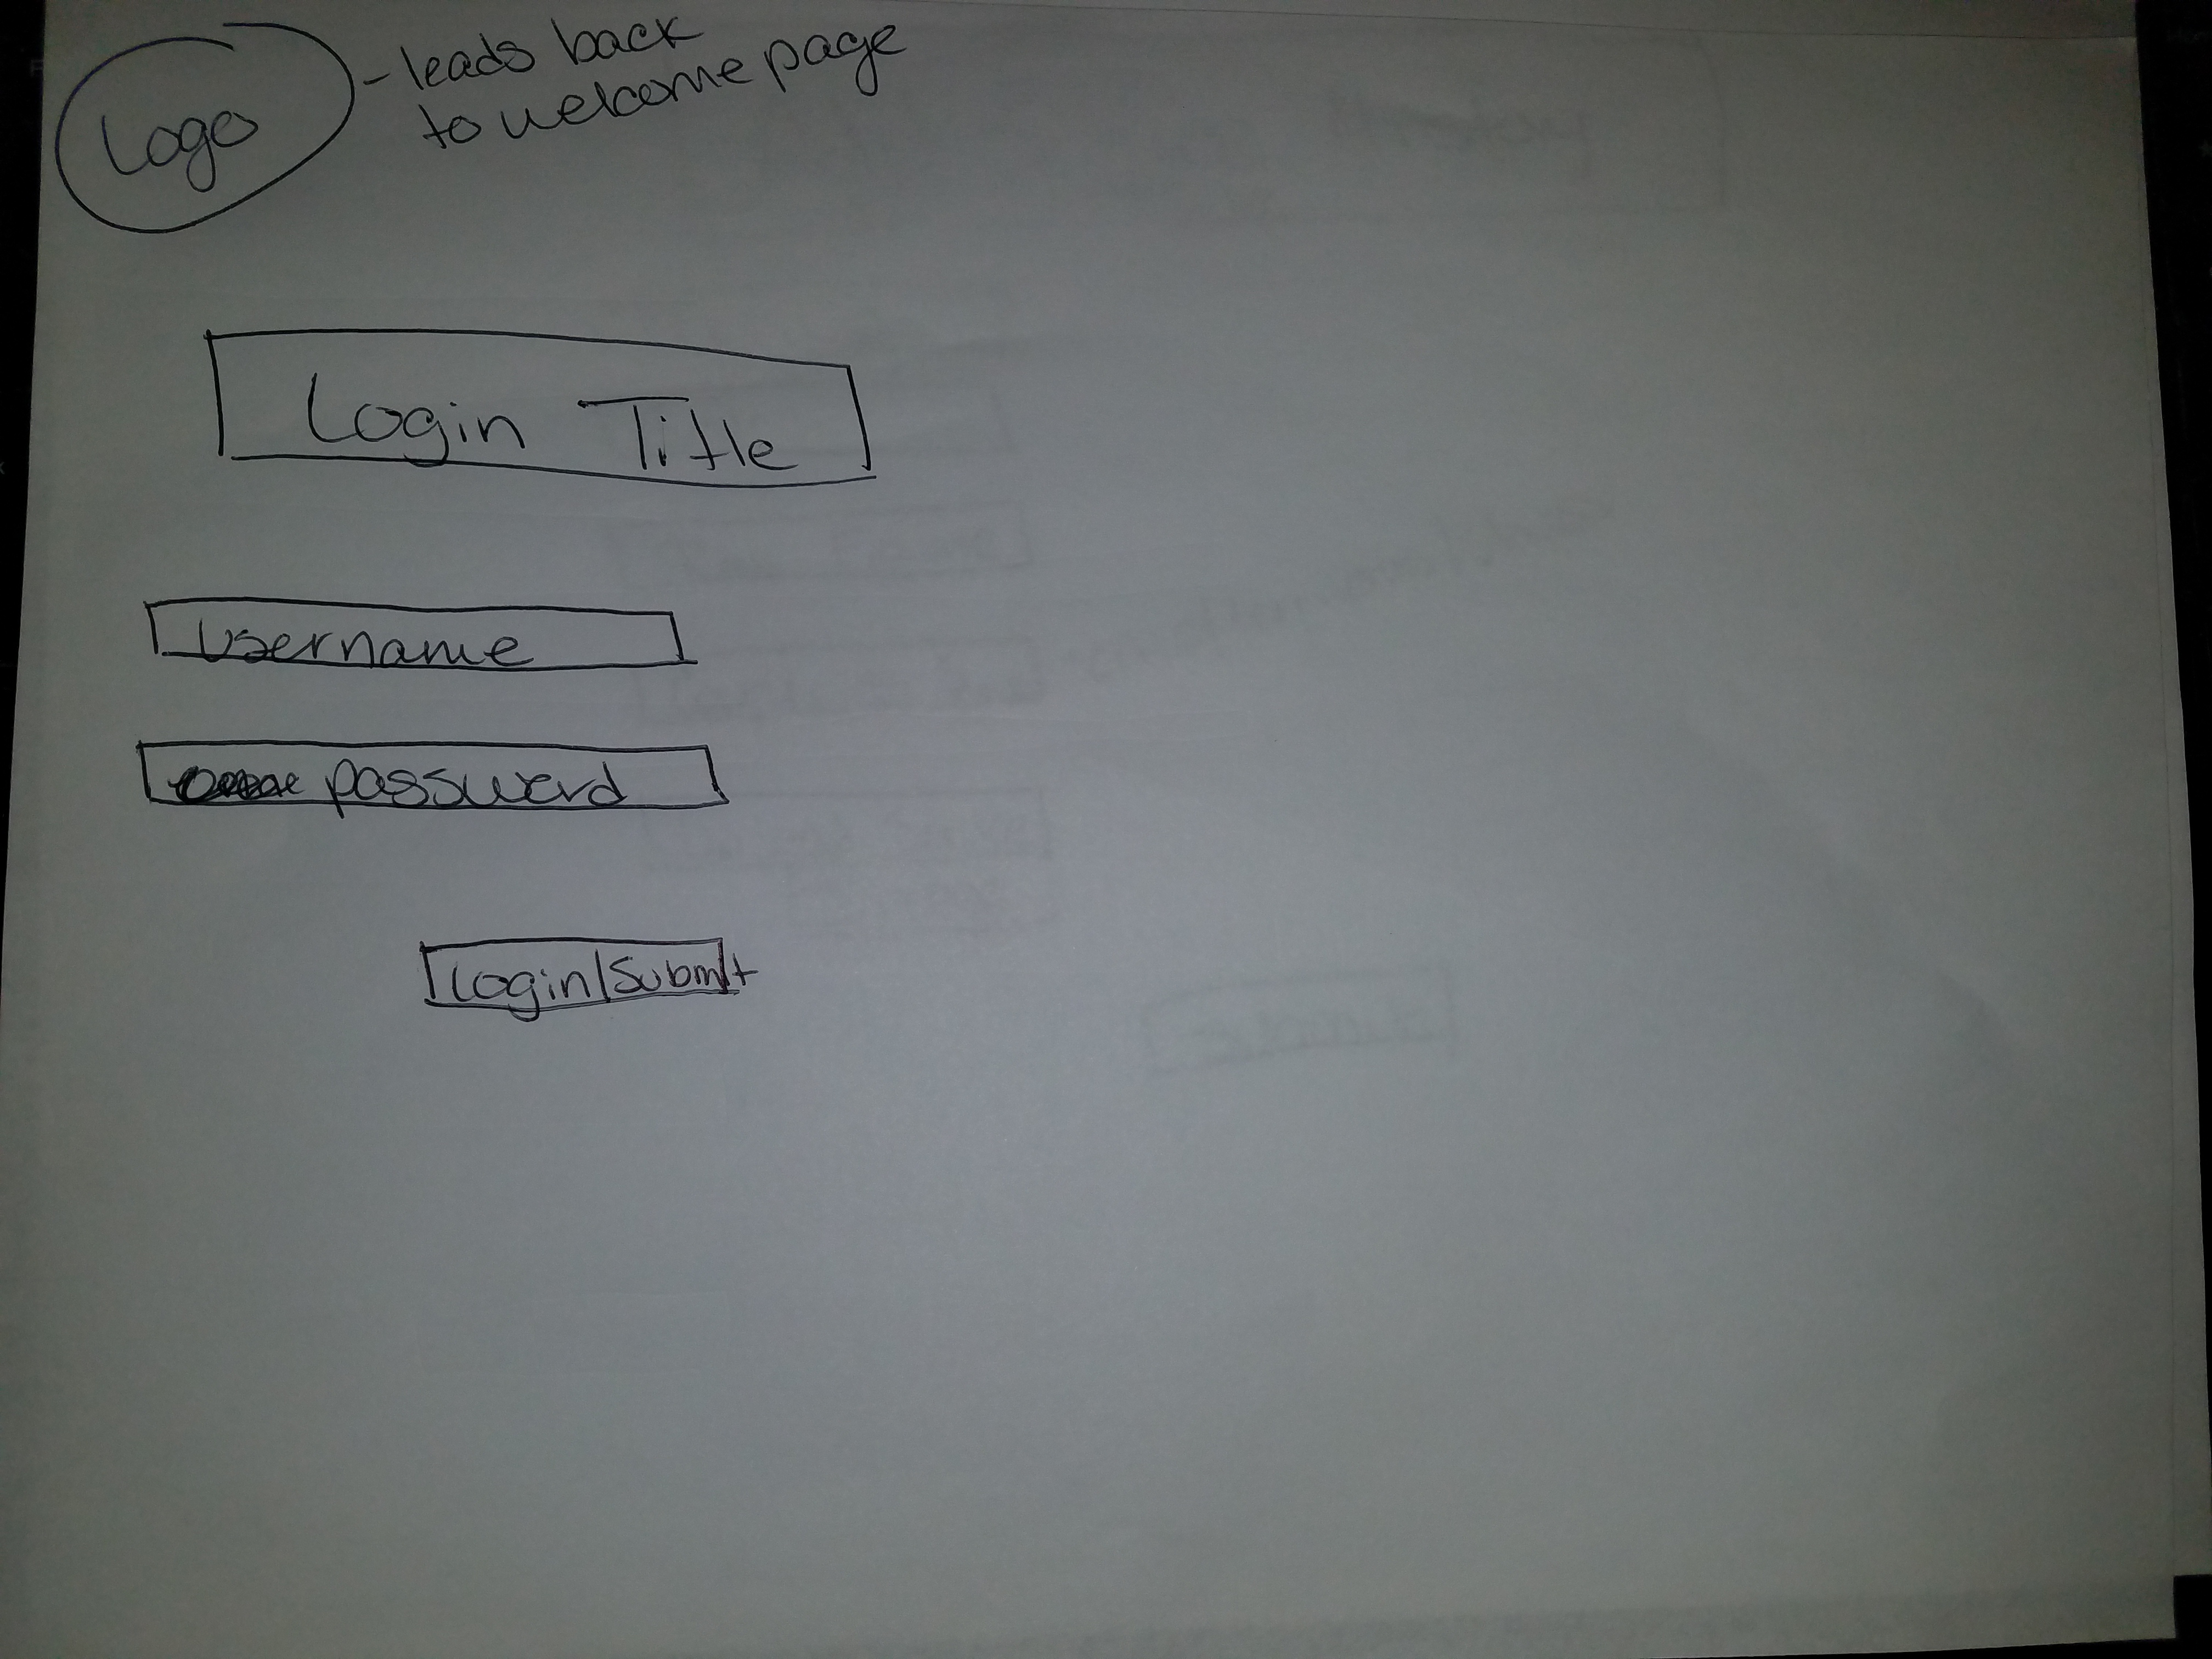 Logo
- leads back
to welcome page
Login Title
Username
password
Login/Submit